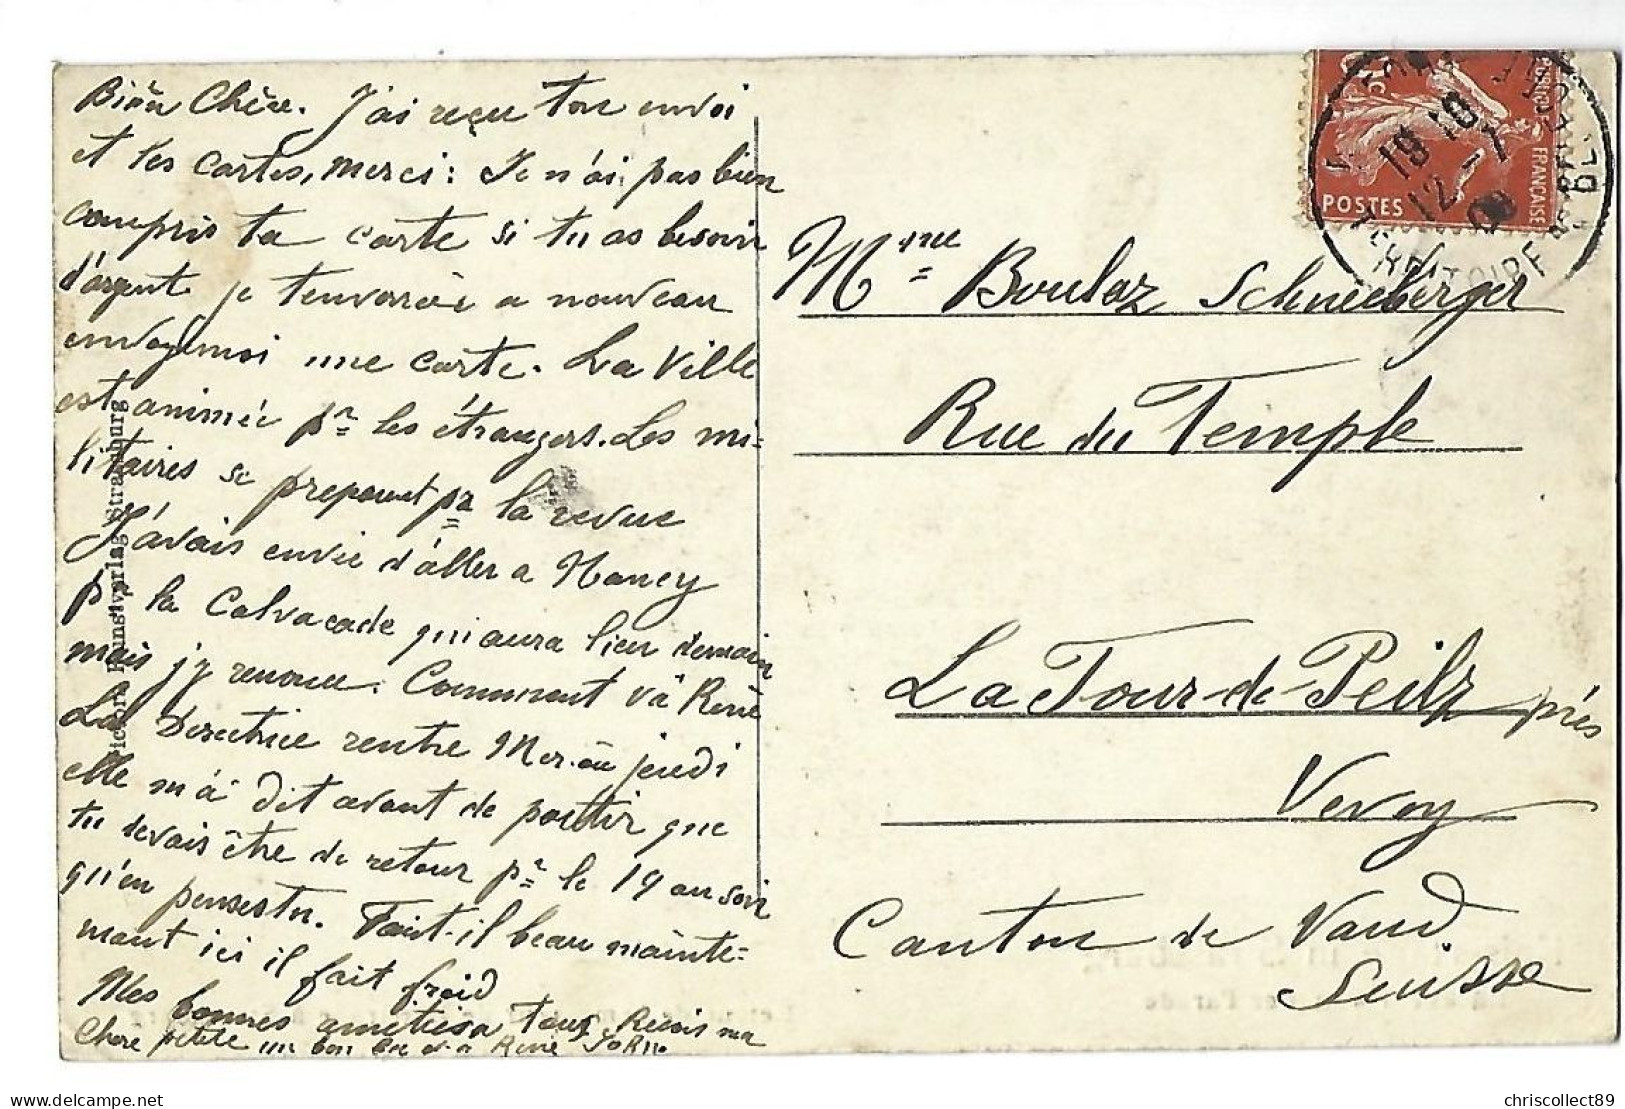 Bien Chère. J'ai reçu ton envoi
et les cartes, merci: Je n'ai pas bien
compris ta carte si tu as besoin
d'argent je t'enverrai a nouveau
envoyemoi une carte. La Ville
est animée pr les étrangers. Les mi=
litaires se preparent pr la revue
J'avais envie d'aller a Nancy
pr la Calvacade qui aura lieu demain
mais j'y renonce. Comment va René
La Directrice rentre jeudi
elle m'a dit avant de partir que
tu devais être de retour pr le 19 au soir
qu'en penses tu. Fait-il beau mainte=
nant ici il fait froid
Mes bonnes amities a tous Reçois ma
Chere petite un bon de René
Kunstverlag Strassburg
POSTES
FRANÇAISE
19 10
12 - 7
09
TERRITOIRE
Mme Boulaz Schneeberger
Rue du Temple
La Tour-de-Peilz près
Vevey
Canton de Vaud
Suisse
chriscollect89